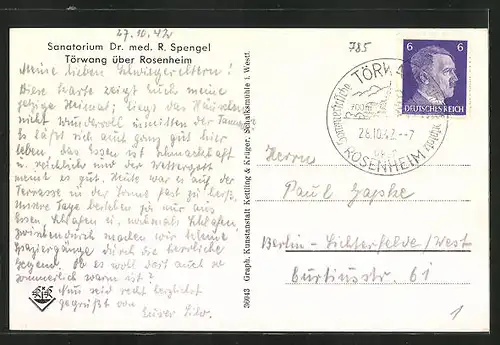 27.10.42
Sanatorium Dr. med. R. Spengel
Törwang über Rosenheim
Meine lieben Schwiegereltern!
Diese Karte zeigt Euch meine
jetzige Heimat; liegt das Häuschen
nicht wundervoll inmitten der Tannen?
Es läßt sich auch ganz gut hier
leben, das Essen ist schmackhaft
u. reichlich und der Wettergott
meint es gut. Heute war es auf der
Terrasse in der Sonne fast zu heiß,
unsere Tage bestehen ja nur aus
Essen, Schlafen u. nochmals Schlafen,
zwischendurch machen wir kleine
Spaziergänge durch die herrliche
Gegend. Ob es wohl dort auch so
sommerlich warm ist?
Nun seid recht herzlichst
gegrüßt von
Eurer
36043 Graph. Kunstanstalt Kettling & Krüger, Schalksmühle i. Westf.
785
TÖRWANG
Sommerfrische
700 m
28.10.42.--7
ROSENHEIM
6 6
DEUTSCHES REICH
Herrn
Paul
Berlin-Lichterfelde/West
Curtiusstr. 61
1